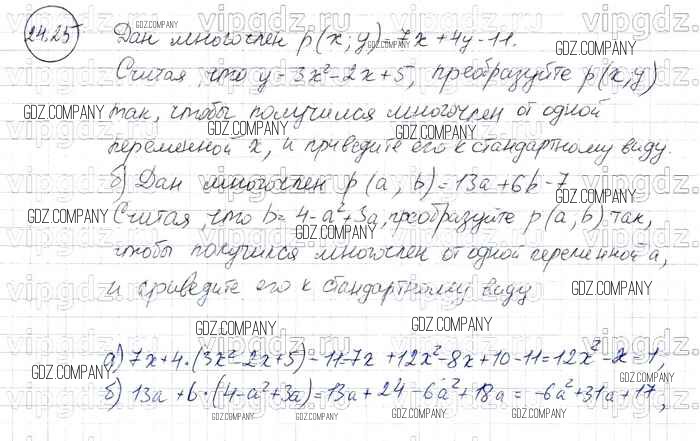 24.25 Дан многочлен p(x;y)=7x+4y-11.
Считая, что y=3x²-2x+5, преобразуйте p(x;y)
так, чтобы получился многочлен от одной
переменной x, и приведите его к стандартному виду.
б) Дан многочлен p(a,b)=13a+6b-7
Считая, что b=4-a²+3a, преобразуйте p(a,b) так,
чтобы получился многочлен от одной переменной a,
и приведите его к стандартному виду
а) 7x+4·(3x²-2x+5)-11=7x+12x²-8x+10-11=12x²-x=1,
б) 13a+6·(4-a²+3a)=13a+24-6a²+18a=-6a²+31a+17,